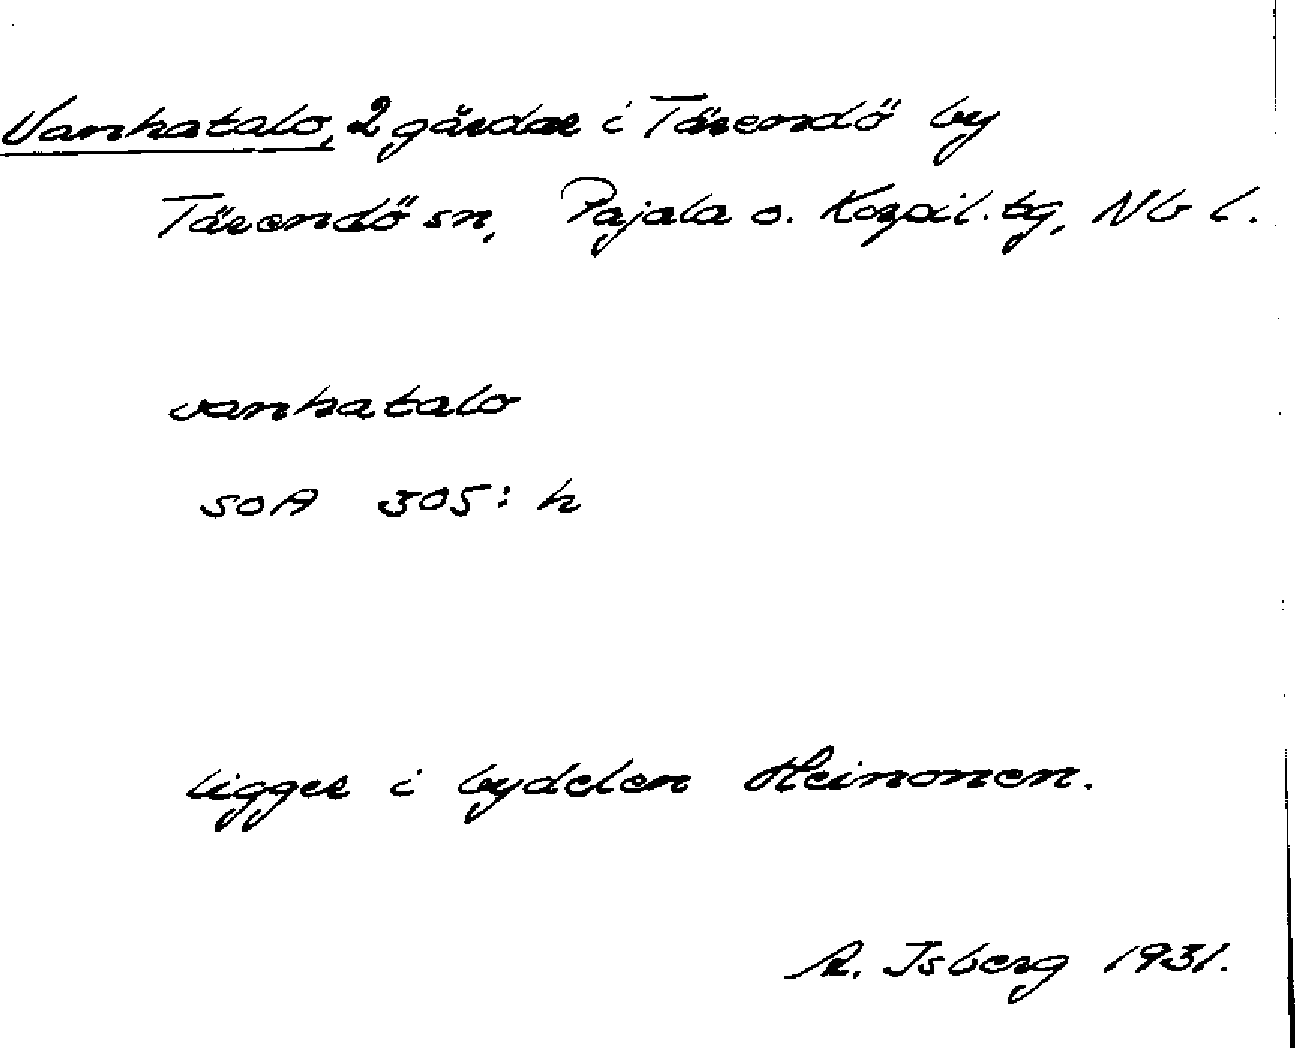 Vanhatalo, 2 gårdar i Tärendö by
Tärendö sn, Pajala o. Korpil. tg, Nb l.
vanhatalo
SOA 305: h
ligger i bydelen Heinonen.
A. Isberg 1931.